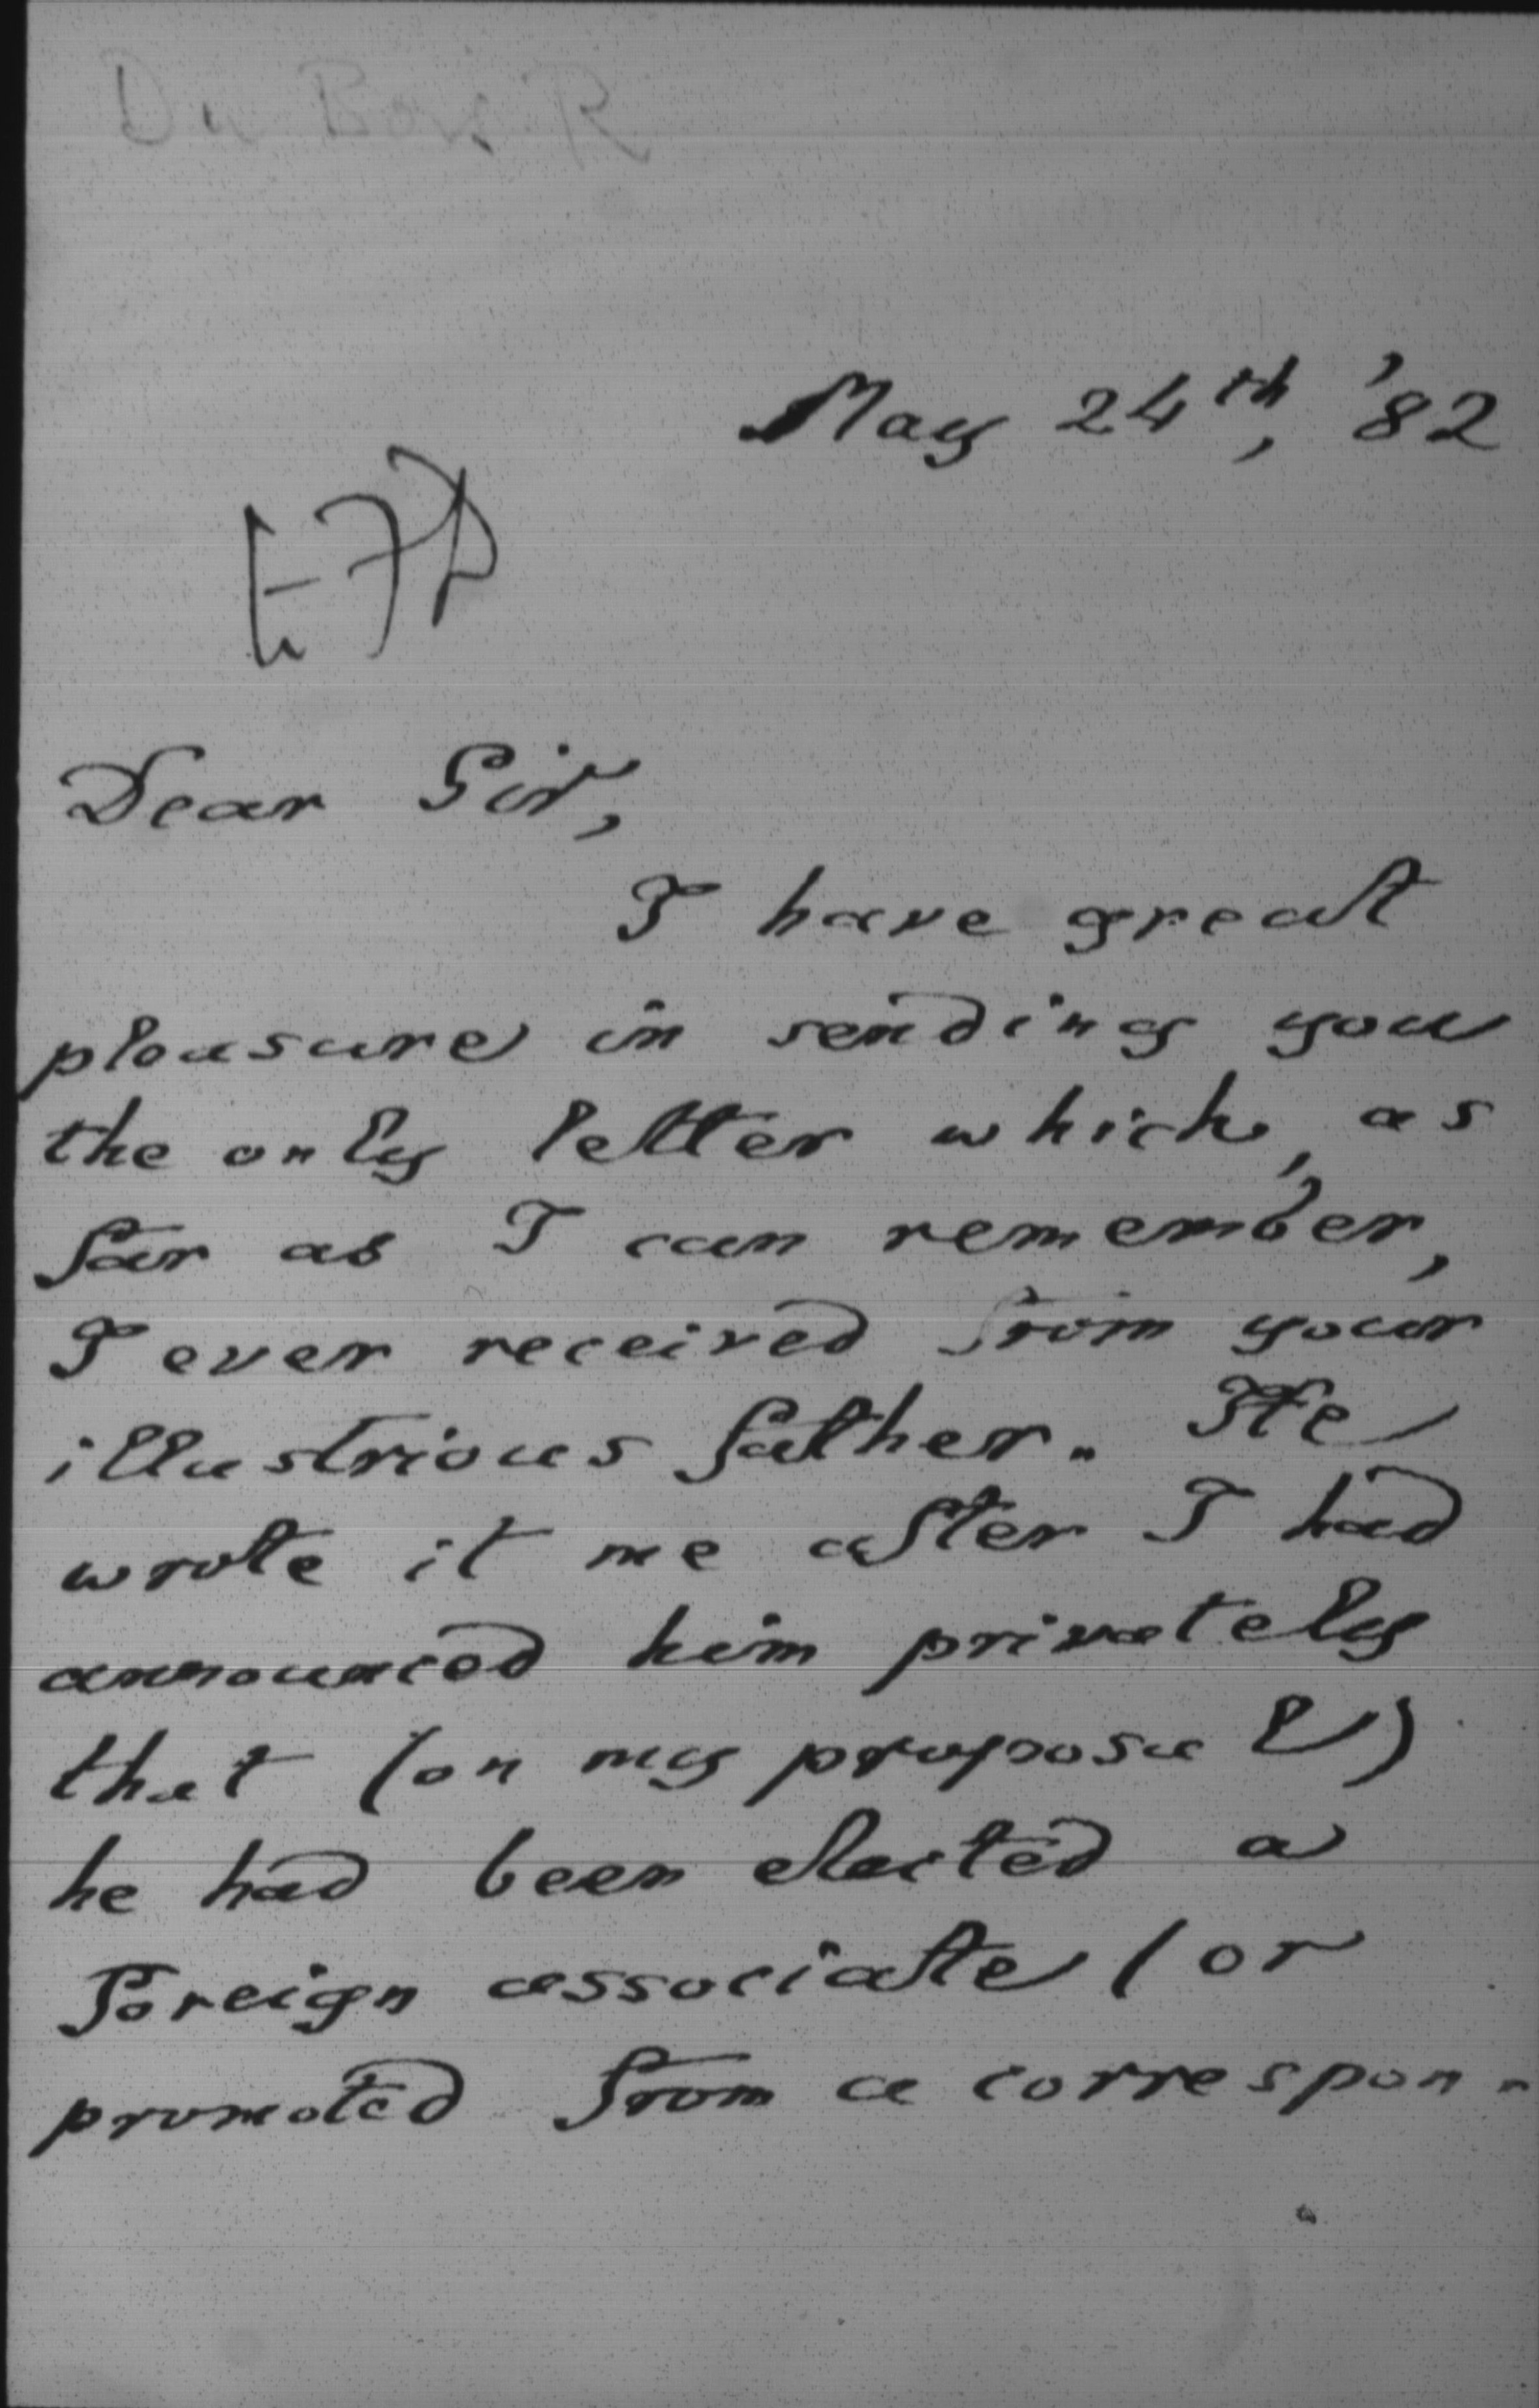 Du Bois R
May 24th, '82
Dear Sir,
I have great
pleasure in sending you
the only letter which, as
far as I can remember,
I ever received from your
illustrious father. He
wrote it me after I had
announced him privately
that (on my proposal)
he had been elected a
foreign associate (or
promoted from a correspon-